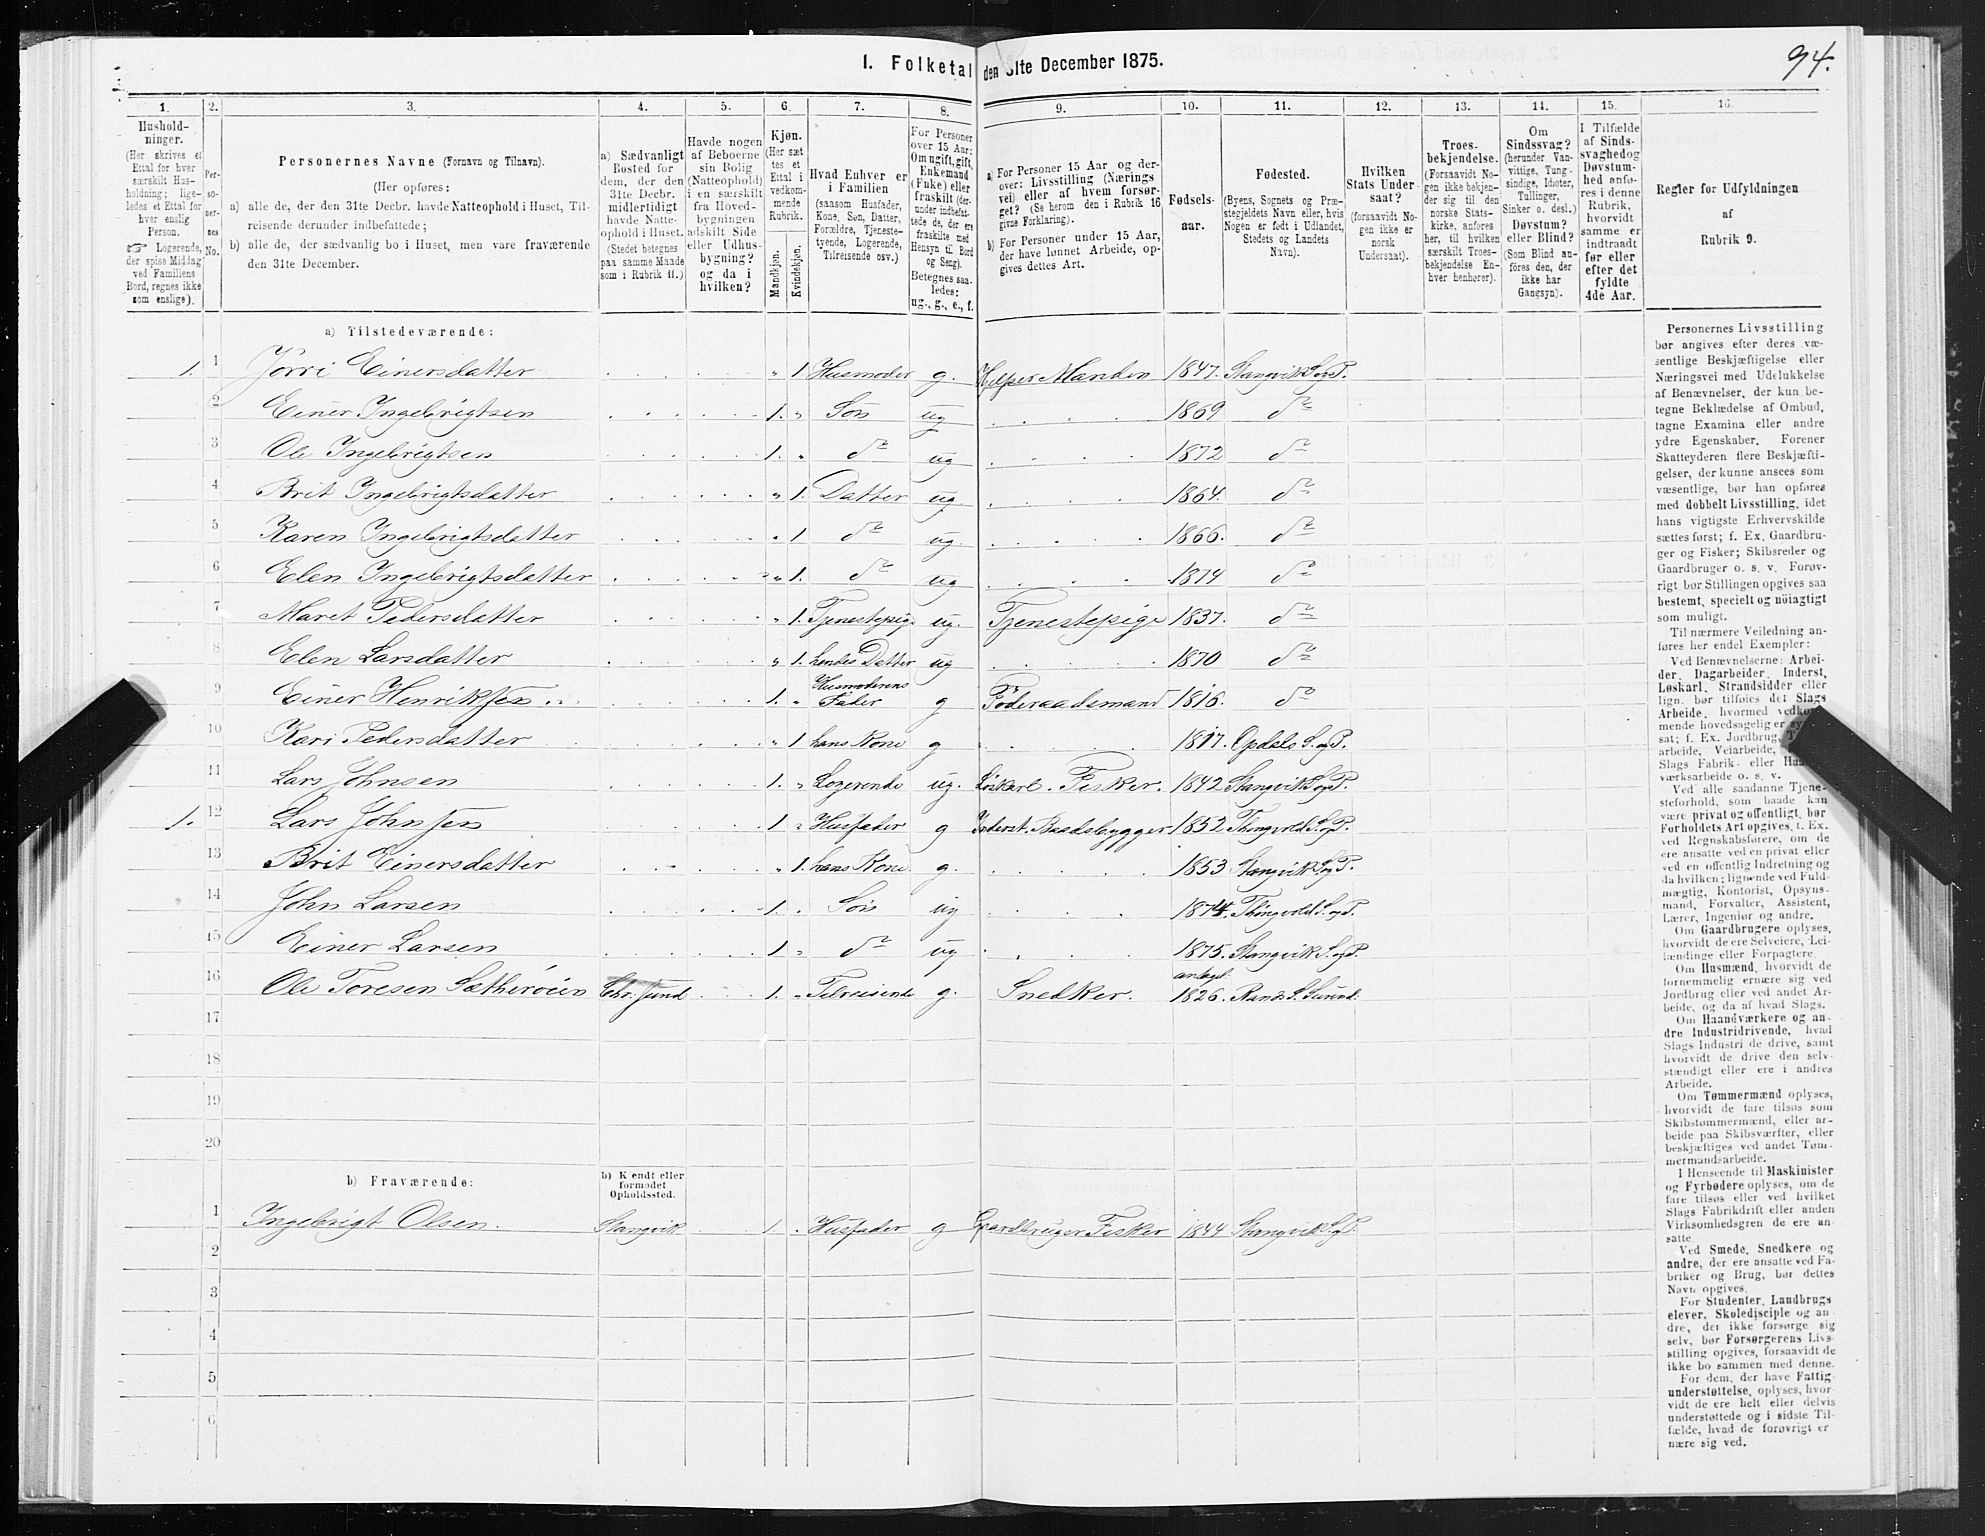 94.
1. Folketal den 31te December 1875.
1. 2. 3. 4. 5. 6. 7. 8. 9. 10. 11. 12. 13. 14. 15. 16.
Hushold-
ninger.
(Her skrives et
Ettal for hver
særskilt Hus-
holdning; lige-
ledes et Ettal for
hver enslig
Person.
☞ Logerende,
der spise Middag
ved Familiens
Bord, regnes ikke
som enslige).
Per-
so-
ner-
nes
No.
Personernes Navne (Fornavn og Tilnavn).
(Her opføres:
a) alle de, der den 31te Decbr. havde Natteophold i Huset, Til-
reisende derunder indbefattede;
b) alle de, der sædvanlig bo i Huset, men vare fraværende
den 31te December.
a) Sædvanligt
Bosted for
dem, der den
31te Decbr.
midlertidigt
havde Natte-
ophold i Huset.
(Stedet betegnes
paa samme Maade
som i Rubrik 11.)
Havde nogen
af Beboerne
sin Bolig
(Natteophold)
i en særskilt
fra Hoved-
bygningen
adskilt Side
eller Udhus-
bygning?
og da i
hvilken?
Kjøn.
(Her sæt
tes et
Ettal i
vedkom-
mende
Rubrik.
Mandkjøn.
Kvindekjøn.
Hvad Enhver er
i Familien
(saasom Husfader,
Kone, Søn, Datter,
Forældre, Tjeneste-
tyende, Logerende,
Tilreisende osv.)
For Personer
over 15 Aar:
Om ugift, gift,
Enkemand
(Fuke) eller
fraskilt (der-
under indbefat-
tede de, der ere
fraskilte med
Hensyn til Bord
og Seng).
Betegnes saa-
ledes:
ug., g., e., f.
a) For Personer 15 Aar og der-
over: Livsstilling (Nærings
vei) eller af hvem forsør-
get? (Se herom den i Rubrik 16
givne Forklaring).
b) For Personer under 15 Aar,
der have lønnet Arbeide, op-
gives dettes Art.
Fødsels-
aar.
Fødested.
(Byens, Sognets og Præ-
stegjeldets Navn eller, hvis
Nogen er født i Udlandet,
Stedets og Landets
Navn).
Hvilken
Stats Under-
saat?
(forsaavidt No-
gen ikke er
norsk
Undersaat).
Troes-
bekjendelse.
(Forsaavidt No-
gen ikke bekjen-
der sig til den
norske Stats-
kirke, anføres
her, til hvilken
særskilt Troes-
bekjendelse En-
hver henhører).
Om
Sindssvag?
(herunder Van-
vittige, Tung-
sindige, Idioter,
Tullinger,
Sinker o. desl.)
Døvstum?
eller Blind?
(Som Blind an-
føres den, der
ikke har
Gangsyn).
I Tilfælde
af Sinds-
svaghed og
Døvstum-
hed anfø-
res i denne
Rubrik,
hvorvidt
samme er
indtraadt
før eller
efter det
fyldte
4de Aar.
Regler for Udfyldningen
af
Rubrik 9.
a) Tilstedeværende:
1. 1 Jörri Einersdatter " 1. Husmoder g. Hjelper Manden 1847. Stangvik S. og P.
2 Einer Ingebrigtsen 1. " Søn ug 1869 do
3 Ole Ingebrigtsen 1. " do ug 1872 do
4 Brit Ingebrigtsdatter " 1. Datter ug. 1864. do
5 Karen Ingebrigtsdatter " 1 do ug. 1866. do
6 Elen Ingebrigtsdatter " 1. do ug 1874 do
7 Maret Pedersdatter " 1. Tjenestepige ug. Tjenestepige 1837. do
8 Elen Larsdatter " 1. hendes Datter ug 1870 do
9 Einer Henriksen 1. " Husmoderens Fader g Föderaadsmand 1816. do
10 Kari Pedersdatter " 1 hans Kone g 1817. Opdals S. og P.
11 Lars Johnsen 1. " Logerende ug. Löskarl. Fisker. 1842 Stangvik S. og P.
1. 12 Lars Johnsen 1 " Husfader g Inderst. Baadsbygger 1852 Thingvold S. og P.
13 Brit Einersdatter " 1. hans Kone g. 1853 Stangvik S. og P.
14 John Larsen 1. " Søn ug 1874. Thingvold S. og P.
15 Einer Larsen 1 " do ug 1875. Stangvik S. og P.
16 Ole Toresen Sætheröien Chr. sund 1. " Tilreisende g. Snedker. antagl. 1826. Rands S. Surend.
17
18
19
20
b) Fraværende:
b) Kjendt eller
formodet
Opholdssted.
1 Ingebrigt Olsen. Stangvik 1. " Husfader g Gaardbruger Fisker 1844 Stangvik S. og P.
2
3
4
5
6
Personernes Livsstilling
bør angives efter deres væ-
sentlige Beskjæftigelse eller
Næringsvei med Udelukkelse
af Benævnelser, der kun be-
tegne Beklædelse af Ombud,
tagne Examina eller andre
ydre Egenskaber. Forener
Skatteyderen flere Beskjæfti-
gelser, der kunne ansees som
væsentlige, bør han opføres
med dobbelt Livsstilling, idet
hans vigtigste Erhvervskilde
sættes først; f. Ex. Gaardbru-
ger og Fisker; Skibsreder og
Gaardbruger o. s. v. Forøv-
rigt bør Stillingen opgives saa
bestemt, specielt og nöiagtigt
som muligt.
Til nærmere Veiledning an-
føres her endel Exempler:
Ved Benævnelserne: Arbei-
der, Dagarbeider, Inderst,
Løskarl, Strandsidder eller
lign. bør tilføies det Slags
Arbeide, hvormed vedkom-
mende hovedsagelig er sys
sat; f. Ex. Jordbrug,
arbeide, Veiarbeide,
Slags Fabrik- eller Haa
værksarbeide o. s. v.
Ved alle saadanne Tjene-
steforhold, som baade kan
være privat og offentligt, bør
Forholdets Art opgives, t. Ex.
ved Regnskabsførere, om de
ere ansatte ved en privat eller
ved en offentlig Indretning og
da hvilken; lignende ved Fuld-
mægtig, Kontorist, Opsyns-
mand, Forvalter, Assistent,
Lærer, Ingeniør og andre.
Om Gaardbrugere oplyses,
hvorvidt de ere Selveiere, Lei-
lændinge eller Forpagtere.
Om Husmænd, hvorvidt de
fornemmelig ernære sig ved
Jordbrug eller ved andet Ar-
beide, og da af hvad Slags.
Om Haandværkere og an-
dre Industridrivende, hvad
Slags Industri de drive, samt
hvorvidt de drive den selv-
stændigt eller ere i andres
Arbeide.
Om Tømmermænd oplyses,
hvorvidt de fare tilsøs som
Skibstømmermænd, eller ar-
beide paa Skibsværfter, eller
beskjæftiges ved andet Tøm-
mermandsarbeide.
I Henseende til Maskinister
og Fyrbødere oplyses, om de
fare tilsøs eller ved hvilket
Slags Fabrikdrift eller anden
Virksomhedsgren de ere an-
satte.
Ved Smede, Snedkere og
andre, der ere ansatte ved Fa-
briker og Brug, bør dettes
Navn opgives.
For Studenter, Landbrugs
elever, Skoledisciple og an-
dre, der ikke forsørge sig
selv, bør Forsørgerens Livs-
stilling opgives, forsaavidt de
ikke bo sammen med denne.
For dem, der have Fattig-
understøttelse, oplyses, hvor-
vidt de ere helt eller delvis
understøttede og i sidste Til-
fælde, hvad de forøvrigt er
nære sig ved.